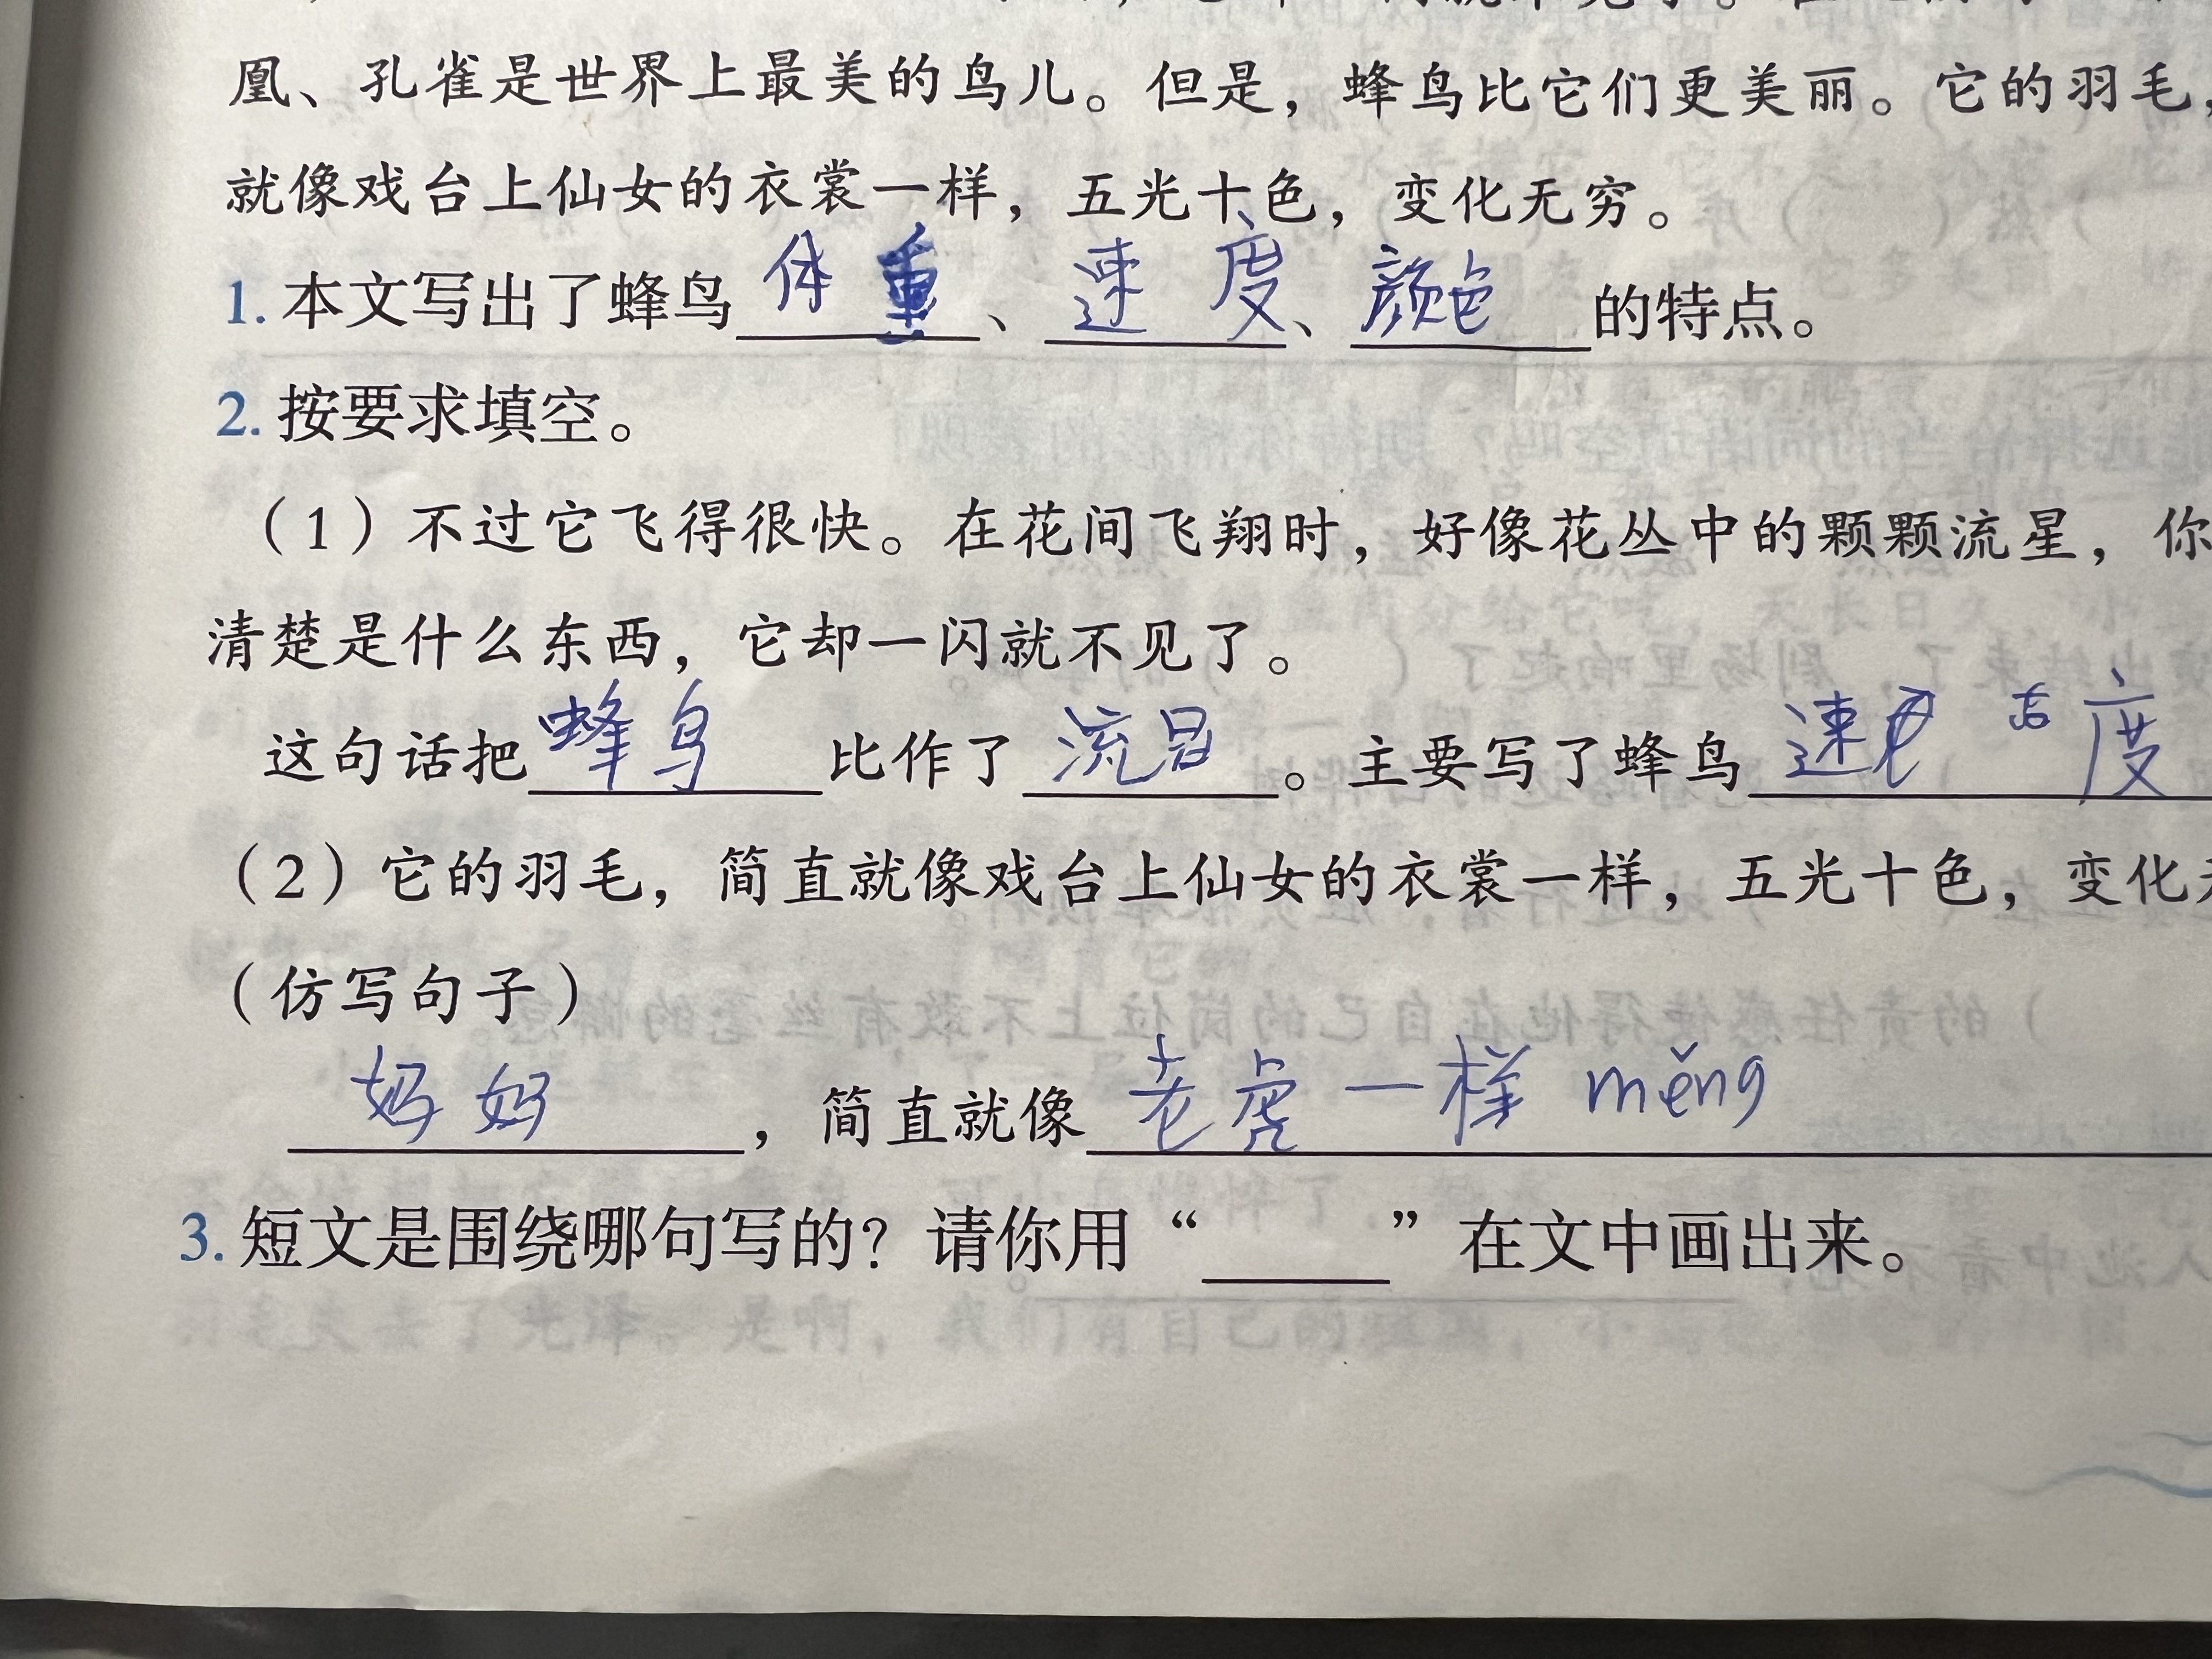 凰、孔雀是世界上最美的鸟儿。但是，蜂鸟比它们更美丽。它的羽毛，
就像戏台上仙女的衣裳一样，五光十色，变化无穷。
1. 本文写出了蜂鸟体重、速度、颜色的特点。
2. 按要求填空。
（1）不过它飞得很快。在花间飞翔时，好像花丛中的颗颗流星，你
清楚是什么东西，它却一闪就不见了。
这句话把蜂鸟比作了流星。主要写了蜂鸟速度
（2）它的羽毛，简直就像戏台上仙女的衣裳一样，五光十色，变化
（仿写句子）
妈妈，简直就像老虎一样 měng
3. 短文是围绕哪句写的？请你用“____”在文中画出来。